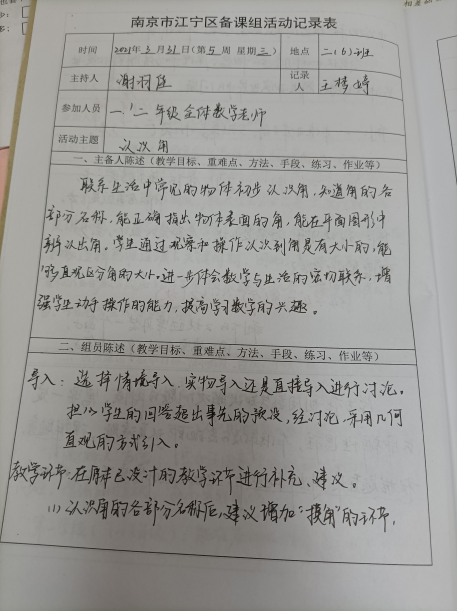 南京市江宁区备课组活动记录表
时间 2021年3月31日(第5周 星期三) 地点 二(6)班
主持人 谢羽佳 记录人 王梦婷
参加人员 一、二年级全体数学老师
活动主题 认识角
一、主备人陈述(教学目标、重难点、方法、手段、练习、作业等)
联系生活中常见的物体初步认识角,知道角的各
部分名称,能正确指出物体表面的角,能在平面图形中
辨认出角。学生通过观察和操作认识到角是有大小的,能
够直观区分角的大小。进一步体会数学与生活的密切联系,增
强学生动手操作的能力,提高学习数学的兴趣。
二、组员陈述(教学目标、重难点、方法、手段、练习、作业等)
导入:选择情境导入、实物导入还是直接导入进行讨论。
担心学生的回答超出事先的预设,经讨论,采用几何
直观的方式引入。
教学环节:在原本已设计的教学环节进行补充、建议。
(1)认识角的各部分名称后,建议增加“摸角”的环节,